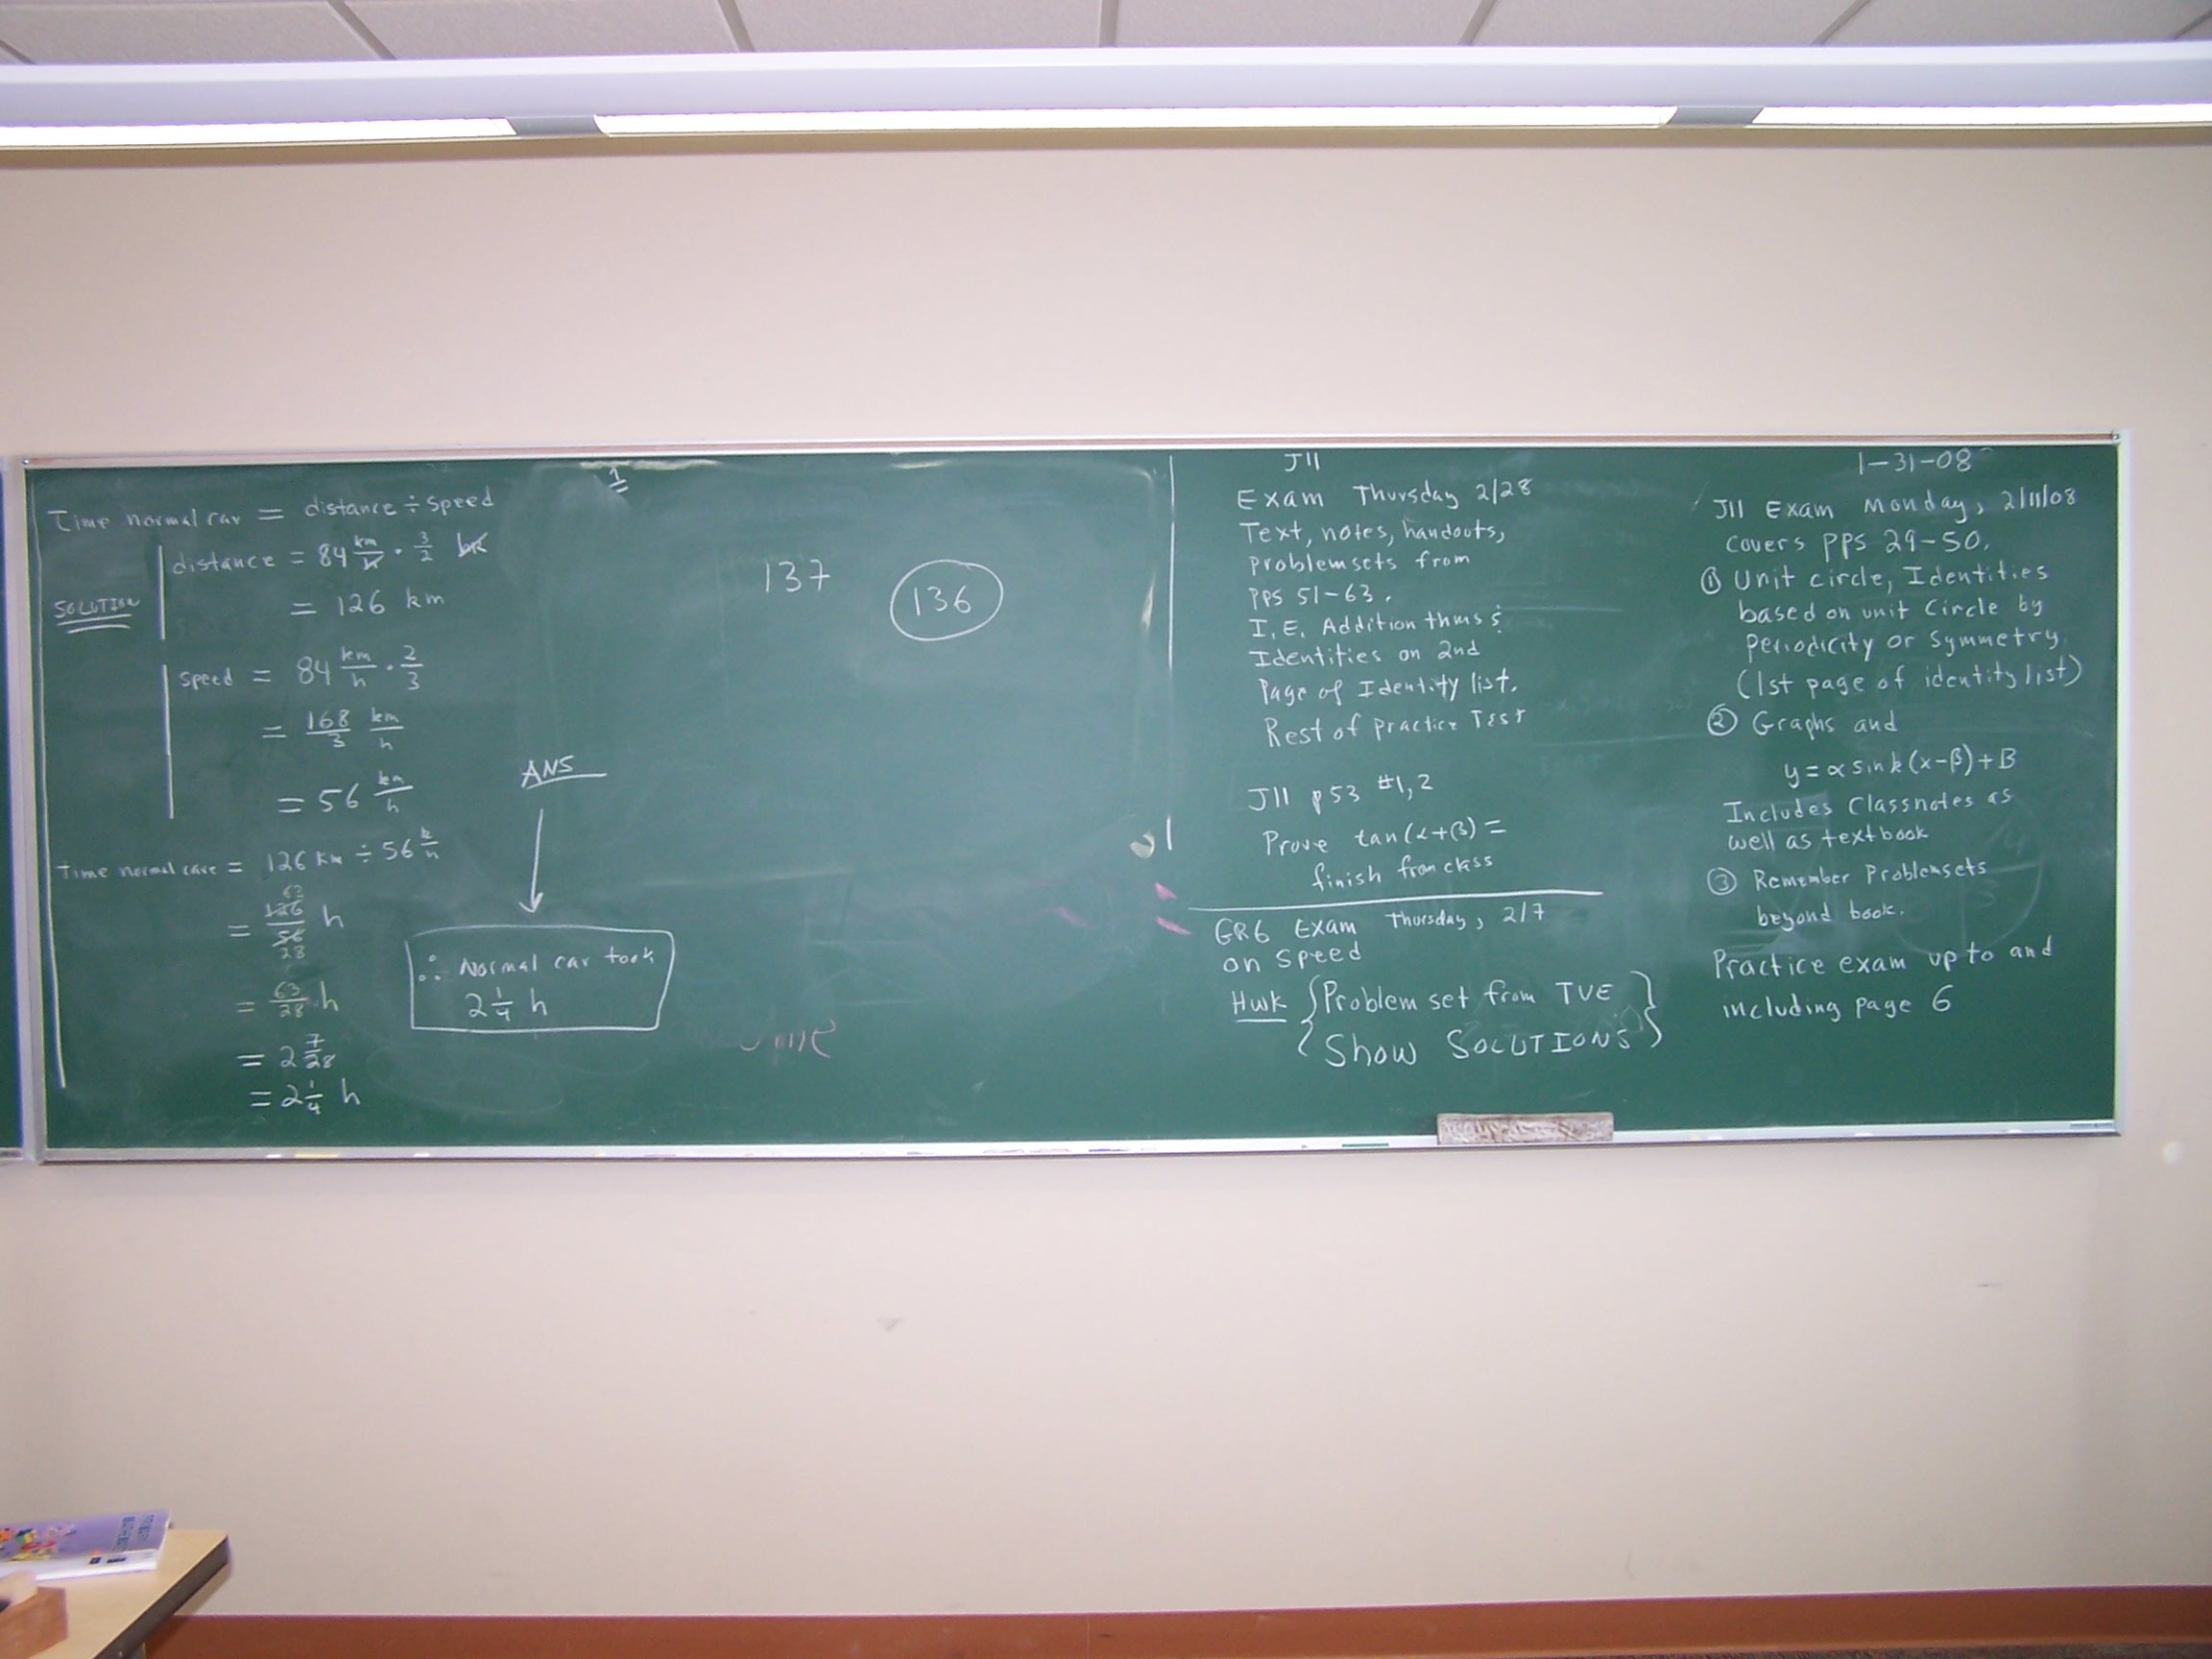 Time normal car = distance ÷ speed
SOLUTION
distance = 84 km/h · 3/2 hr
= 126 km
speed = 84 km/h · 2/3
= 168/3 km/h
= 56 km/h
Time normal care = 126 km ÷ 56 k/h
63
= 126/56 h
28
= 63/28 h
= 2 7/28
= 2 1/4 h
ANS
∴ Normal car took
2 1/4 h
1
137
136
J11
Exam Thursday 2/28
Text, notes, handouts,
problemsets from
pps 51-63.
I.E. Addition thms &
Identities on 2nd
Page of Identity list.
Rest of practice Test
J11 p53 #1,2
Prove tan(α+β) =
finish from class
GR6 Exam Thursday, 2/7
on speed
Hwk {Problem set from TVE}
Show SOLUTIONS
1-31-08
J11 Exam Monday, 2/11/08
covers pps 29-50.
① Unit circle, Identities
based on unit Circle by
Periodicity or Symmetry
(1st page of identity list)
② Graphs and
y = α sin k (x-β) + B
Includes Classnotes as
well as textbook
③ Remember Problemsets
beyond book.
Practice exam up to and
including page 6